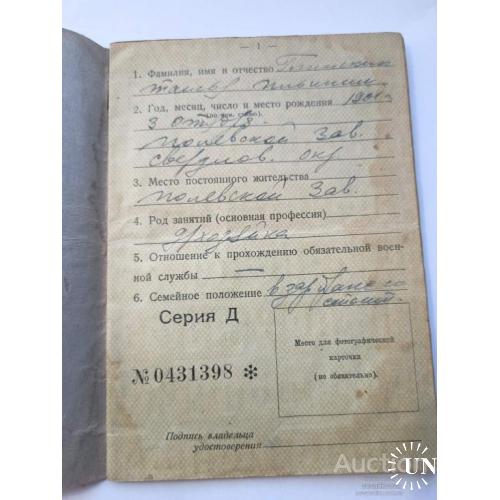 — 1 —
1. Фамилия, имя и отчество
2. Год, месяц, число и место рождения
3 Отября
Полевской Зав.
свердлов. окр
3. Место постоянного жительства
Полевской Зав.
4. Род занятий (основная профессия)
д/хозяйка
5. Отношение к прохождению обязательной воен-
ной службы —
6. Семейное положение в зар
Серия Д
Место для фотографической
карточки
(не обязательно).
№ 0431398 ✻
Подпись владельца
удостоверения
Auction
UN